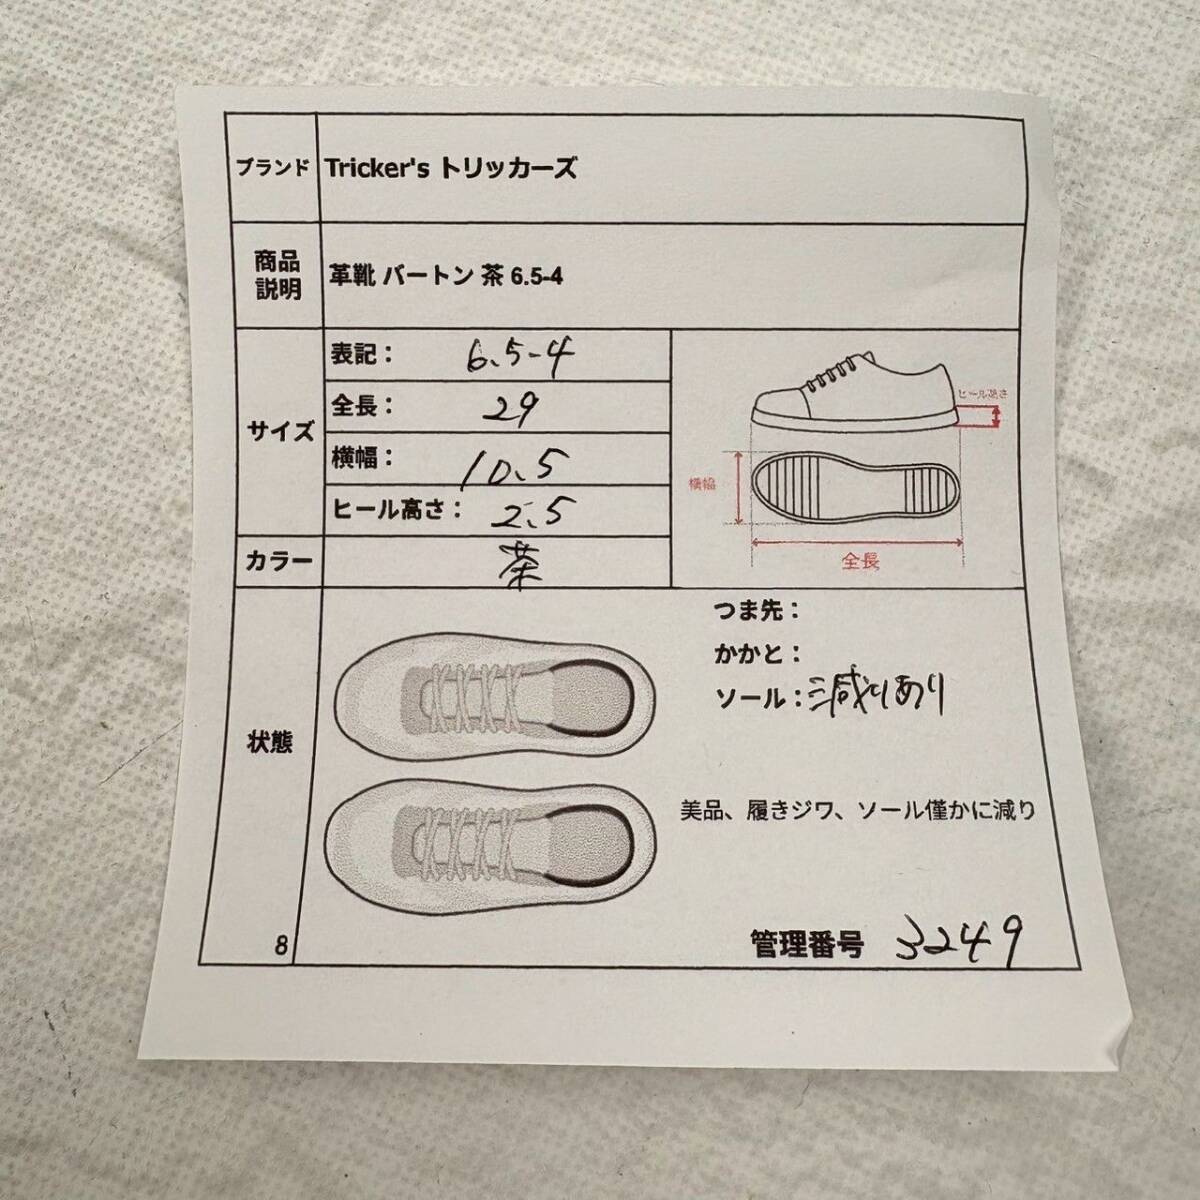 ブランド Tricker's トリッカーズ
商品
説明
革靴 バートン 茶 6.5-4
サイズ
表記： 6.5-4
全長： 29
横幅： 10.5
ヒール高さ： 2.5
ヒール高さ
横幅
全長
カラー 茶
状態
つま先：
かかと：
ソール：減りあり
美品、履きジワ、ソール僅かに減り
8
管理番号 3249